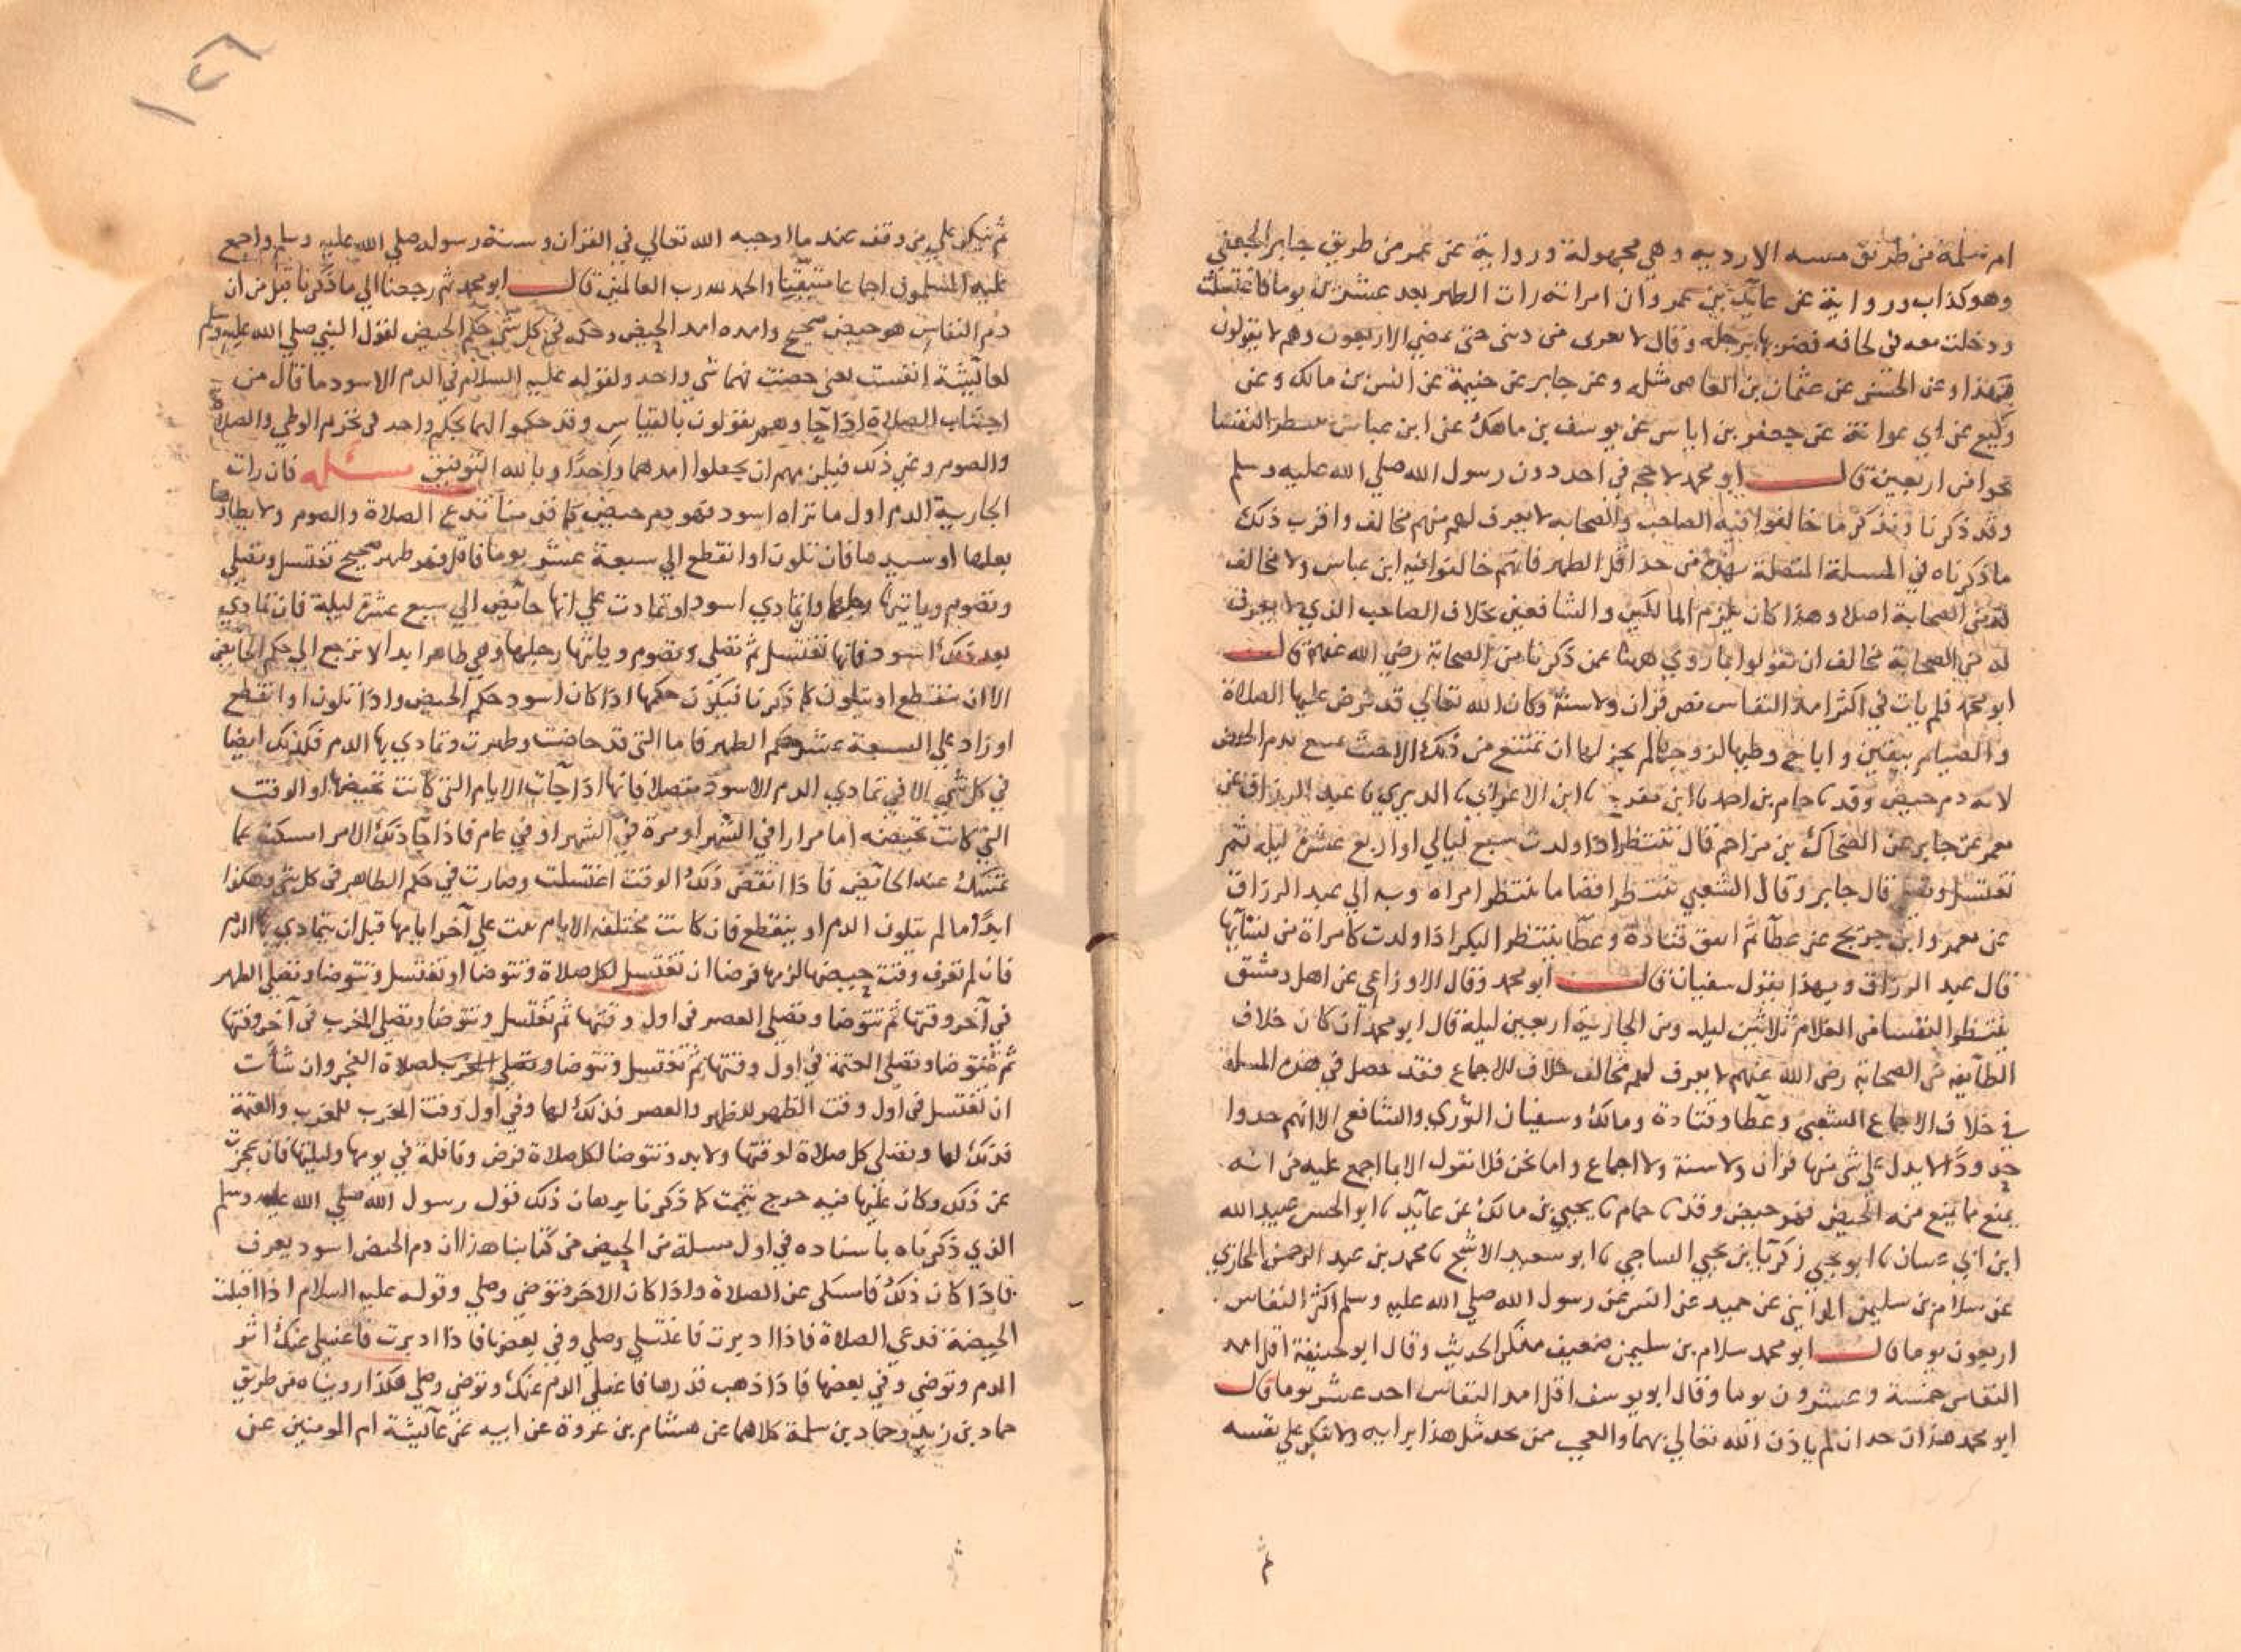 ام سلمة من طريق مسه الازديه وهي مجهولة ورواية عن عمر من طريق جابر الجعفي
وهو كذاب ورواية عن عائذ بن عمرو ان امراته رات الطهر بعد عشرين يوما فاغتسلت
ودخلت معه في لحافه فضربها برجله وقال لا تغرى من ديني حتى تمضي الاربعون وهم لا يقولون
بهذا وعن الحسن عن عثمان بن ابي العاصى مثله وعن جابر عن خيثمة عن انس بن مالك وعن
وكيع عن ابي عوانة عن جعفر بن اياس عن يوسف بن ماهك عن ابن عباس تنتظر النفسا
نحوا من اربعين قال ابو محمد لا حجة في احد دون رسول الله صلي الله عليه وسلم
وقد ذكرنا ونذكر ما خالفوا فيه الصاحب والصحابه لا يعرف لهم منهم مخالف واقرب ذلك
ما ذكرناه في المسلة المتصلة بهذه من حد اقل الطهر فانهم خالفوا فيه ابن عباس ولا مخالف
له من الصحابة اصلا وهذا كان يلزم المالكيين والشافعيين بخلاف الصاحب الذي لا يعرف
له من الصحابة مخالف ان يقولوا بما روي ههنا عمن ذكرنا من الصحابة رضي الله عنهم قال
ابو محمد فلم يات في اكثر امد النفاس نص قران ولا سنة وكان الله تعالي قد فرض عليها الصلاة
والصيام بيقين واباح وطيها لزوجها لم يجز لها ان تمتنع من ذلك الا حيث تمتنع بدم الحيض
لانه دم حيض وقد نا حمام بن احمد نا ابن مفرج نا ابن الاعرابي نا الدبري نا عبد الرزاق عن
معمر عن جابر عن الضحاك بن مزاحم قال تنتظر اذا ولدت سبع ليالي او اربع عشرة ليله ثم
تغتسل وتصلي قال جابر وقال الشعبي تنتظر اقصا ما تنتظر امراه وبه الي عبد الرزاق
عن معمر وابن جريج عن عطآ ثم اتفق قتادة وعطآ تنتظر البكر اذا ولدت كامراة من نسآئها
قال عبد الرزاق وبهذا يقول سفيان قال ابو محمد وقال الاوزاعي عن اهل دمشق
تنتظر النفسا من الغلام ثلاثين ليله ومن الجارية اربعين ليلة قال ابو محمد ان كان خلاف
الطآيفه من الصحابة رضي الله عنهم لا يعرف لهم مخالف خلاف للاجماع فقد حصل في هذه المسله
في خلاف الاجماع الشعبي وعطآ وقتادة ومالك وسفيان الثوري والشافعي الا انهم حدوا
حدودا لا يدل علي شي منها قران ولا سنة ولا اجماع واما نحن فلا نقول الا بما اجمع عليه من انه
يمنع مما يمنع منه الحيض فهو حيض وقد نا حمام نا يحيي بن مالك عن عائذ نا ابو الحسن عبيد الله
ابن ابي غسان نا ابو يحيي زكريا بن يحيي الساجي نا ابو سعيد الاشج نا محمد بن عبد الرحمن المحاربي
عن سلام بن سليمن المدايني عن حميد عن انس عن رسول الله صلي الله عليه وسلم اكثر النفاس
اربعون يوما قال ابو محمد سلام بن سليمن ضعيف منكر الحديث وقال ابو حنيفة اقل امد
النفاس خمسة وعشرون يوما وقال ابو يوسف اقل امد النفاس احد عشر يوما قال
ابو محمد هذان حدان لم ياذن الله تعالي بهما والعجب ممن يحد مثل هذا برايه ولا ينكر علي نفسه
ثم
ثم ينكر علي من وقف عند ما اوجبه الله تعالي في القران وسنة رسوله صلي الله عليه وسلم واجمع
عليه المسلمون اجماعا متيقنا والحمد لله رب العالمين قال ابو محمد ثم رجعنا الي ما ذكرنا قبل من ان
دم النفاس هو حيض صحيح وامده امد الحيض وحكمه في كل شي حكم الحيض لقول النبي صلي الله عليه وسلم
لعآيشة انفست بمعنى حضت فهما شي واحد ولقوله عليه السلام في الدم الاسود ما قال من
اجتناب الصلاة اذا جآ وهم يقولون بالقياس وقد حكموا لهما بحكم واحد في تحريم الوطي والصلاة
والصوم وغير ذلك فيلزمهم ان يجعلوا امدهما واحدا وبالله التوفيق مسئله فان رات
الجارية الدم اول ما تراه اسود فهو دم حيض كما قدمنا تدع الصلاة والصوم ولا يطاوها
بعلها او سيدها فان تلون او انقطع الي سبعة عشر يوما فاقل فهو طهر صحيح تغتسل وتصلي
وتصوم وياتيها بعلها وان تمادي اسود تمادت علي انها حايض الي سبع عشرة ليلة فان تمادي
بعد ذلك اسود فانها تغتسل ثم تصلي وتصوم وياتيها رجلها وهي طاهر ابدا لا ترجع الي حكم الحايض
الا ان ينقطع او يتلون كما ذكرنا فيكون حكمها اذا كان اسود حكم الحيض واذا تلون او انقطع
او زاد علي السبعة عشر حكم الطهر فاما التي قد حاضت وطهرت وتمادي بها الدم فكذلك ايضا
في كل شي الا في تمادي الدم الاسود متصلا فانها اذا جآت الايام التي كانت تحيضها او الوقت
التي كانت تحيضه اما مرارا في الشهر او مرة في الشهر او في عام فاذا جآ ذلك الامر امسكت عما
تمسك عنه الحائض فاذا انقضي ذلك الوقت اغتسلت وصارت في حكم الطاهر في كل شي وهكذا
ابدا ما لم يتلون الدم او ينقطع فان كانت مختلفة الايام بنت علي آخر ايامها قبل ان يتمادي بها الدم
فان لم تعرف وقت حيضها لزمها فرضا ان تغتسل لكل صلاة وتتوضا او تغتسل وتتوضا وتصلي الظهر
في آخر وقتها ثم تتوضا وتصلي العصر في اول وقتها ثم تغتسل وتتوضا وتصلي المغرب في آخر وقتها
ثم تتوضا وتصلي العتمة في اول وقتها ثم تغتسل وتتوضا لصلاة الفجر وان شآت
ان تغتسل في اول وقت الظهر للظهر والعصر فذلك لها وفي اول وقت المغرب للمغرب والعتمة
فذلك لها وتصلي كل صلاة لوقتها ولا بد وتتوضا لكل صلاة فرض ونافلة في يومها وليلتها فان عجزت
عن ذلك وكان عليها فيه حرج تيممت كما ذكرنا برهان ذلك قول رسول الله صلي الله عليه وسلم
الذي ذكرناه باسناده في اول مسلة من الحيض من كتابنا هذا ان دم الحيض اسود يعرف
فاذا كان ذلك فامسكي عن الصلاة واذا كان الاخر فتوضي وصلي وقوله عليه السلام اذا اقبلت
الحيضة فدعي الصلاة فاذا ادبرت فاغتسلي وصلي وفي بعضها فاذا ادبرت فاغسلي عنك اثر
الدم وتوضي وفي بعضها فاذا ذهب قدرها فاغسلي الدم عنك وتوضي وصلي هكذا رويناه من طريق
حماد بن زيد وحماد بن سلمة كلاهما عن هشام بن عروة عن ابيه عن عآئيشة ام المومنين عن